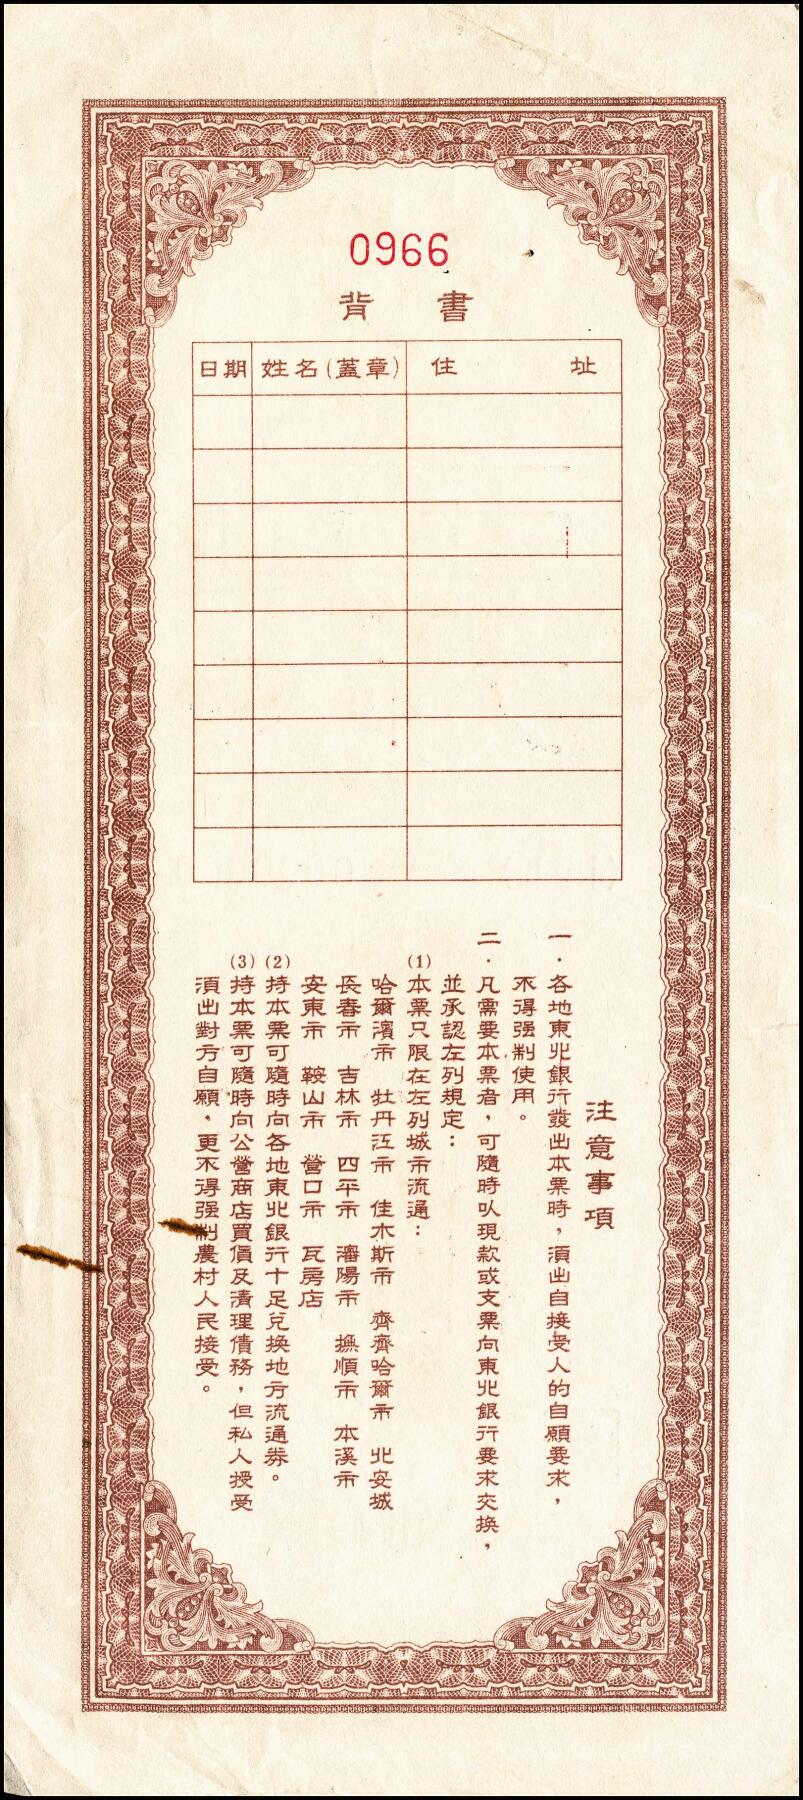 0966
背書
日期 姓名(蓋章) 住址
注意事項
一．各地東北銀行發出本票時，須出自接受人的自願要求，
不得强制使用。
二．凡需要本票者，可隨時以現款或支票向東北銀行要求交換，
並承認左列規定：
(1)本票只限在左列城市流通：
哈爾濱市 牡丹江市 佳木斯市 齊齊哈爾市 北安城
長春市 吉林市 四平市 瀋陽市 撫順市 本溪市
安東市 鞍山市 營口市 瓦房店
(2)持本票可隨時向各地東北銀行十足兌換地方流通券。
(3)持本票可隨時向公營商店買價及清理債務，但私人授受
須出對方自願，更不得强制農村人民接受。